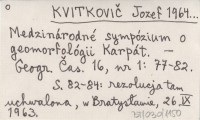 KVITKOVIČ Jozef 1964...
Medzinárodné sympózium o
geomorfológii Karpát. —
Geogr. Čas. 16, nr 1: 77-82.
S. 82-84: rezolucja tam
uchwalona, w Bratysławie, 26 IX
1963.